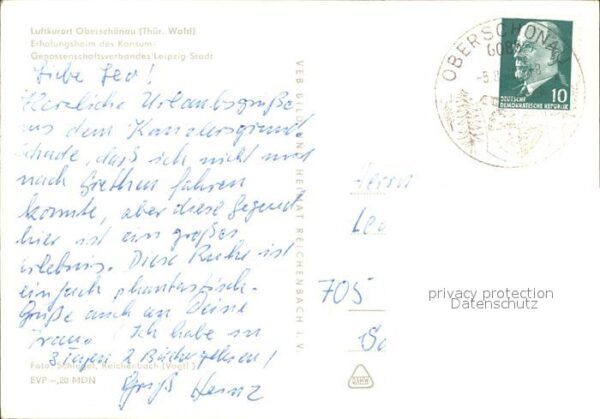 Luftkurort Oberschönau (Thür. Wald)
Erholungsheim des Konsum-
Genossenschaftsverbandes Leipzig-Stadt
Liebe Leo!
Herzliche Urlaubsgrüße
aus dem Kanzlersgrund
Schade, daß ich nicht mit
nach Grethen fahren
konnte, aber diese Gegend
hier ist ein großes
Erlebnis. Diese Ruhe ist
einfach phantastisch.
Grüße auch an Deine
Frau! (Ich habe in
3 Tagen 2 Bücher gelesen!
Gruß Heinz
Foto: Schlegel, Reichenbach (Vogtl.)
EVP -,20 MDN
VEB BILD HEIMAT REICHENBACH I. V.
OBERSCHÖNAU
DEUTSCHE
DEMOKRATISCHE REPUBLIK
10
Herrn
Leo
705
privacy protection
Datenschutz